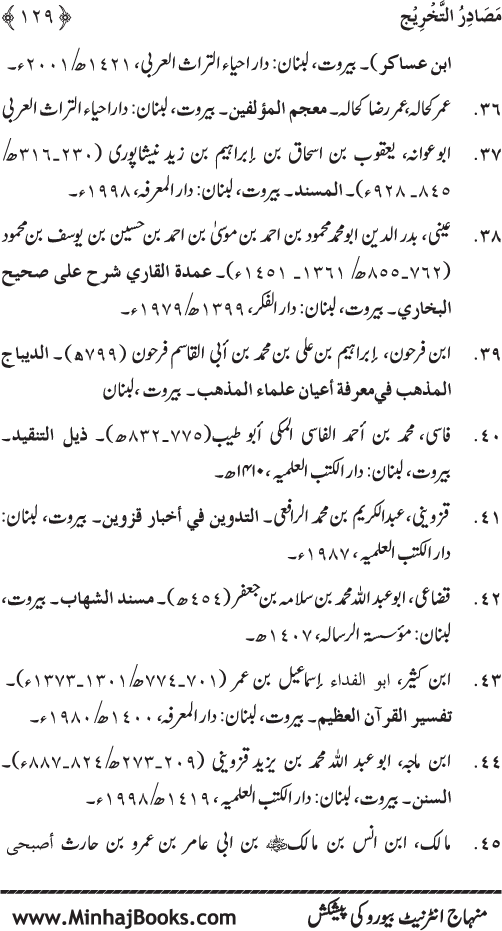 مَصَادِرُ التَّخْرِيْج ﴿۱۲۹﴾
ابن عساکر)۔ بیروت، لبنان: دار احیاء التراث العربی، ۱۴۲۱ھ/۲۰۰۱ء۔
۳۶. عمر کحالہ، عمر رضا کحالہ۔ معجم المؤلفین۔ بیروت، لبنان: دار احیاء التراث العربی
۳۷. ابو عوانہ، یعقوب بن اسحاق بن إبراہیم بن زید نیشاپوری (۲۳۰۔۳۱۶ھ/
۸۴۵۔۹۲۸ء)۔ المسند۔ بیروت، لبنان: دار المعرفہ، ۱۹۹۸ء۔
۳۸. عینی، بدر الدین ابو محمد محمود بن احمد بن موسیٰ بن احمد بن حسین بن یوسف بن محمود
(۷۶۲۔۸۵۵ھ/ ۱۳۶۱۔ ۱۴۵۱ء)۔ عمدة القاري شرح على صحيح
البخاري۔ بیروت، لبنان: دار الفکر، ۱۳۹۹ھ/۱۹۷۹ء۔
۳۹. ابن فرحون، إبراہیم بن علی بن محمد بن أبی القاسم فرحون (۷۹۹ھ)۔ الدیباج
المذهب في معرفة أعيان علماء المذهب۔ بیروت ،لبنان
۴۰. فاسی، محمد بن أحمد الفاسی المکی أبو طیب(۷۷۵۔۸۳۲ھ)۔ ذیل التنقید۔
بیروت، لبنان: دار الکتب العلمیہ، ۱۴۱۰ھ۔
۴۱. قزوینی، عبدالکریم بن محمد الرافعی۔ التدوین في أخبار قزوین۔ بیروت، لبنان:
دار الکتب العلمیہ، ۱۹۸۷ء۔
۴۲. قضاعی، ابو عبد اللہ محمد بن سلامہ بن جعفر (۴۵۴ھ)۔ مسند الشهاب۔ بیروت،
لبنان: مؤسسۃ الرسالہ، ۱۴۰۷ھ۔
۴۳. ابن کثیر، ابو الفداء إسماعیل بن عمر (۷۰۱۔۷۷۴ھ/۱۳۰۱۔۱۳۷۳ء)۔
تفسير القرآن العظيم۔ بیروت، لبنان: دار المعرفہ، ۱۴۰۰ھ/۱۹۸۰ء۔
۴۴. ابن ماجہ، ابو عبد اللہ محمد بن یزید قزوینی (۲۰۹۔۲۷۳ھ/۸۲۴۔۸۸۷ء)۔
السنن۔ بیروت، لبنان: دار الکتب العلمیہ، ۱۴۱۹ھ/۱۹۹۸ء۔
۴۵. مالک، ابن انس بن مالک ﷺ بن ابی عامر بن عمرو بن حارث أصبحی
منہاج انٹرنیٹ بیورو کی پیشکش www.MinhajBooks.com